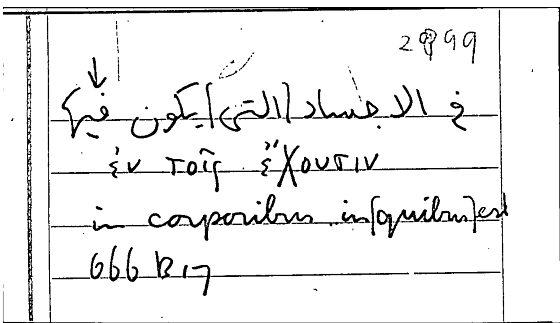 2899
في الاجساد [التى] يكون فيها
ἐν τοῖς ἔχουσιν
in corporibus in [quibus] est
666 B 17